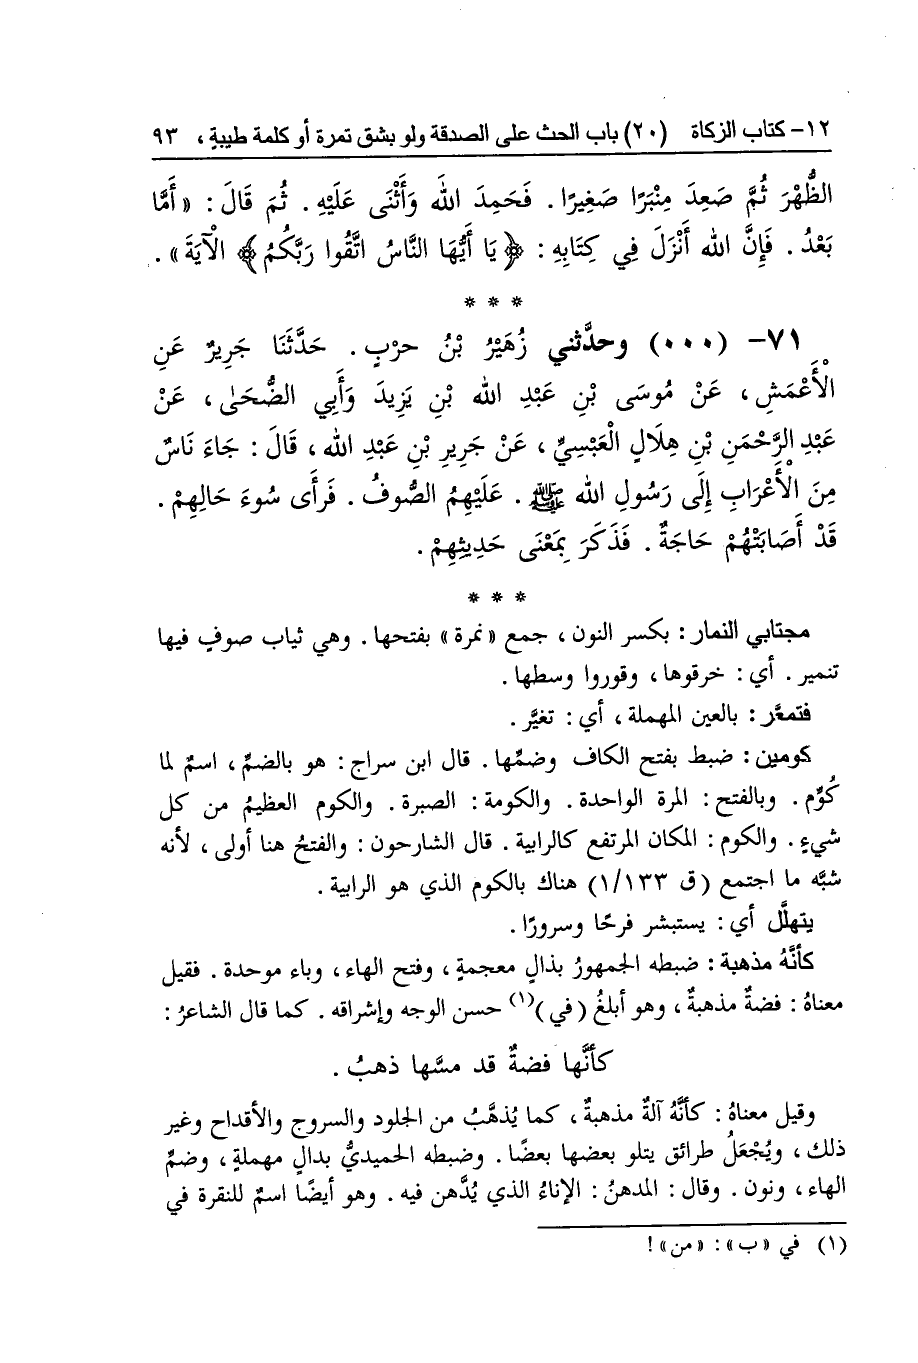 ١٢- كتاب الزكاة (٢٠) باب الحث على الصدقة ولو بشق تمرة أو كلمة طيبةٍ ، ٩٣
الظُّهْرَ ثُمَّ صَعِدَ مِنْبَرًا صَغِيرًا . فَحَمِدَ اللهَ وَأَثْنَى عَلَيْهِ . ثُمَ قَالَ : « أَمَّا
بَعْدُ . فَإِنَّ الله أَنْزَلَ فِي كِتَابِهِ : ﴿ يَا أَيُّهَا النَّاسُ اتَّقُوا رَبَّكُمُ ﴾ الْآيَةَ » .
* * *
٧١- (٠٠٠) وحدَّثني زُهَيْرُ بْنُ حرْبٍ . حَدَّثَنَا جَرِيرٌ عَنِ
الْأَعْمَشِ ، عَنْ مُوسَى بْنِ عَبْدِ الله بْنِ يَزِيدَ وَأَبِي الضُّحَىٰ ، عَنْ
عَبْدِ الرَّحْمَنِ بْنِ هِلَالٍ الْعَبْسِيِّ ، عَنْ جَرِيرِ بْنِ عَبْدِ الله ، قَالَ : جَاءَ نَاسٌ
مِنَ الْأَعْرَابِ إِلَى رَسُولِ الله ﷺ . عَلَيْهِمُ الصُّوفُ . فَرَأَى سُوءَ حَالِهِمْ .
قَدْ أَصَابَتْهُمْ حَاجَةٌ . فَذَكَرَ بِمَعْنَى حَدِيثِهِمْ .
* * *
مجتابي النمار : بكسر النون ، جمع « نمرة » بفتحها . وهي ثياب صوفٍ فيها
تنمير . أي : خرقوها ، وقوروا وسطها .
فتمعَّر : بالعين المهملة ، أي : تغيَّر .
كومين : ضبط بفتح الكاف وضمِّها . قال ابن سراج : هو بالضمِّ ، اسمٌ لما
كُوِّم . وبالفتح : المرة الواحدة . والكومة : الصبرة . والكوم العظيمُ من كل
شيءٍ . والكوم : المكان المرتفع كالرابية . قال الشارحون : والفتحُ هنا أولى ، لأنه
شبَّه ما اجتمع (ق ١/١٣٣) هناك بالكوم الذي هو الرابية .
يتهلَّل أي : يستبشر فرحًا وسرورًا .
كأنَّهُ مذهبة : ضبطه الجمهورُ بذالٍ معجمةٍ ، وفتح الهاء ، وباء موحدة . فقيل
معناهُ : فضةٌ مذهبةٌ ، وهو أبلغُ (في)(١) حسن الوجه وإشراقه . كما قال الشاعرُ :
كأنَّها فضةٌ قد مسَّها ذهبُ .
وقيل معناهُ : كأنَّهُ آلةٌ مذهبةٌ ، كما يُذهَّبُ من الجلود والسروج والأقداح وغير
ذلك ، ويُجْعَلُ طرائق يتلو بعضها بعضًا . وضبطه الحميديُّ بدالٍ مهملةٍ ، وضمِّ
الهاء ، ونون . وقال : المدهنُ : الإناءُ الذي يُدَّهن فيه . وهو أيضًا اسمٌ للنقرة في
(١) في «ب» : «من» !